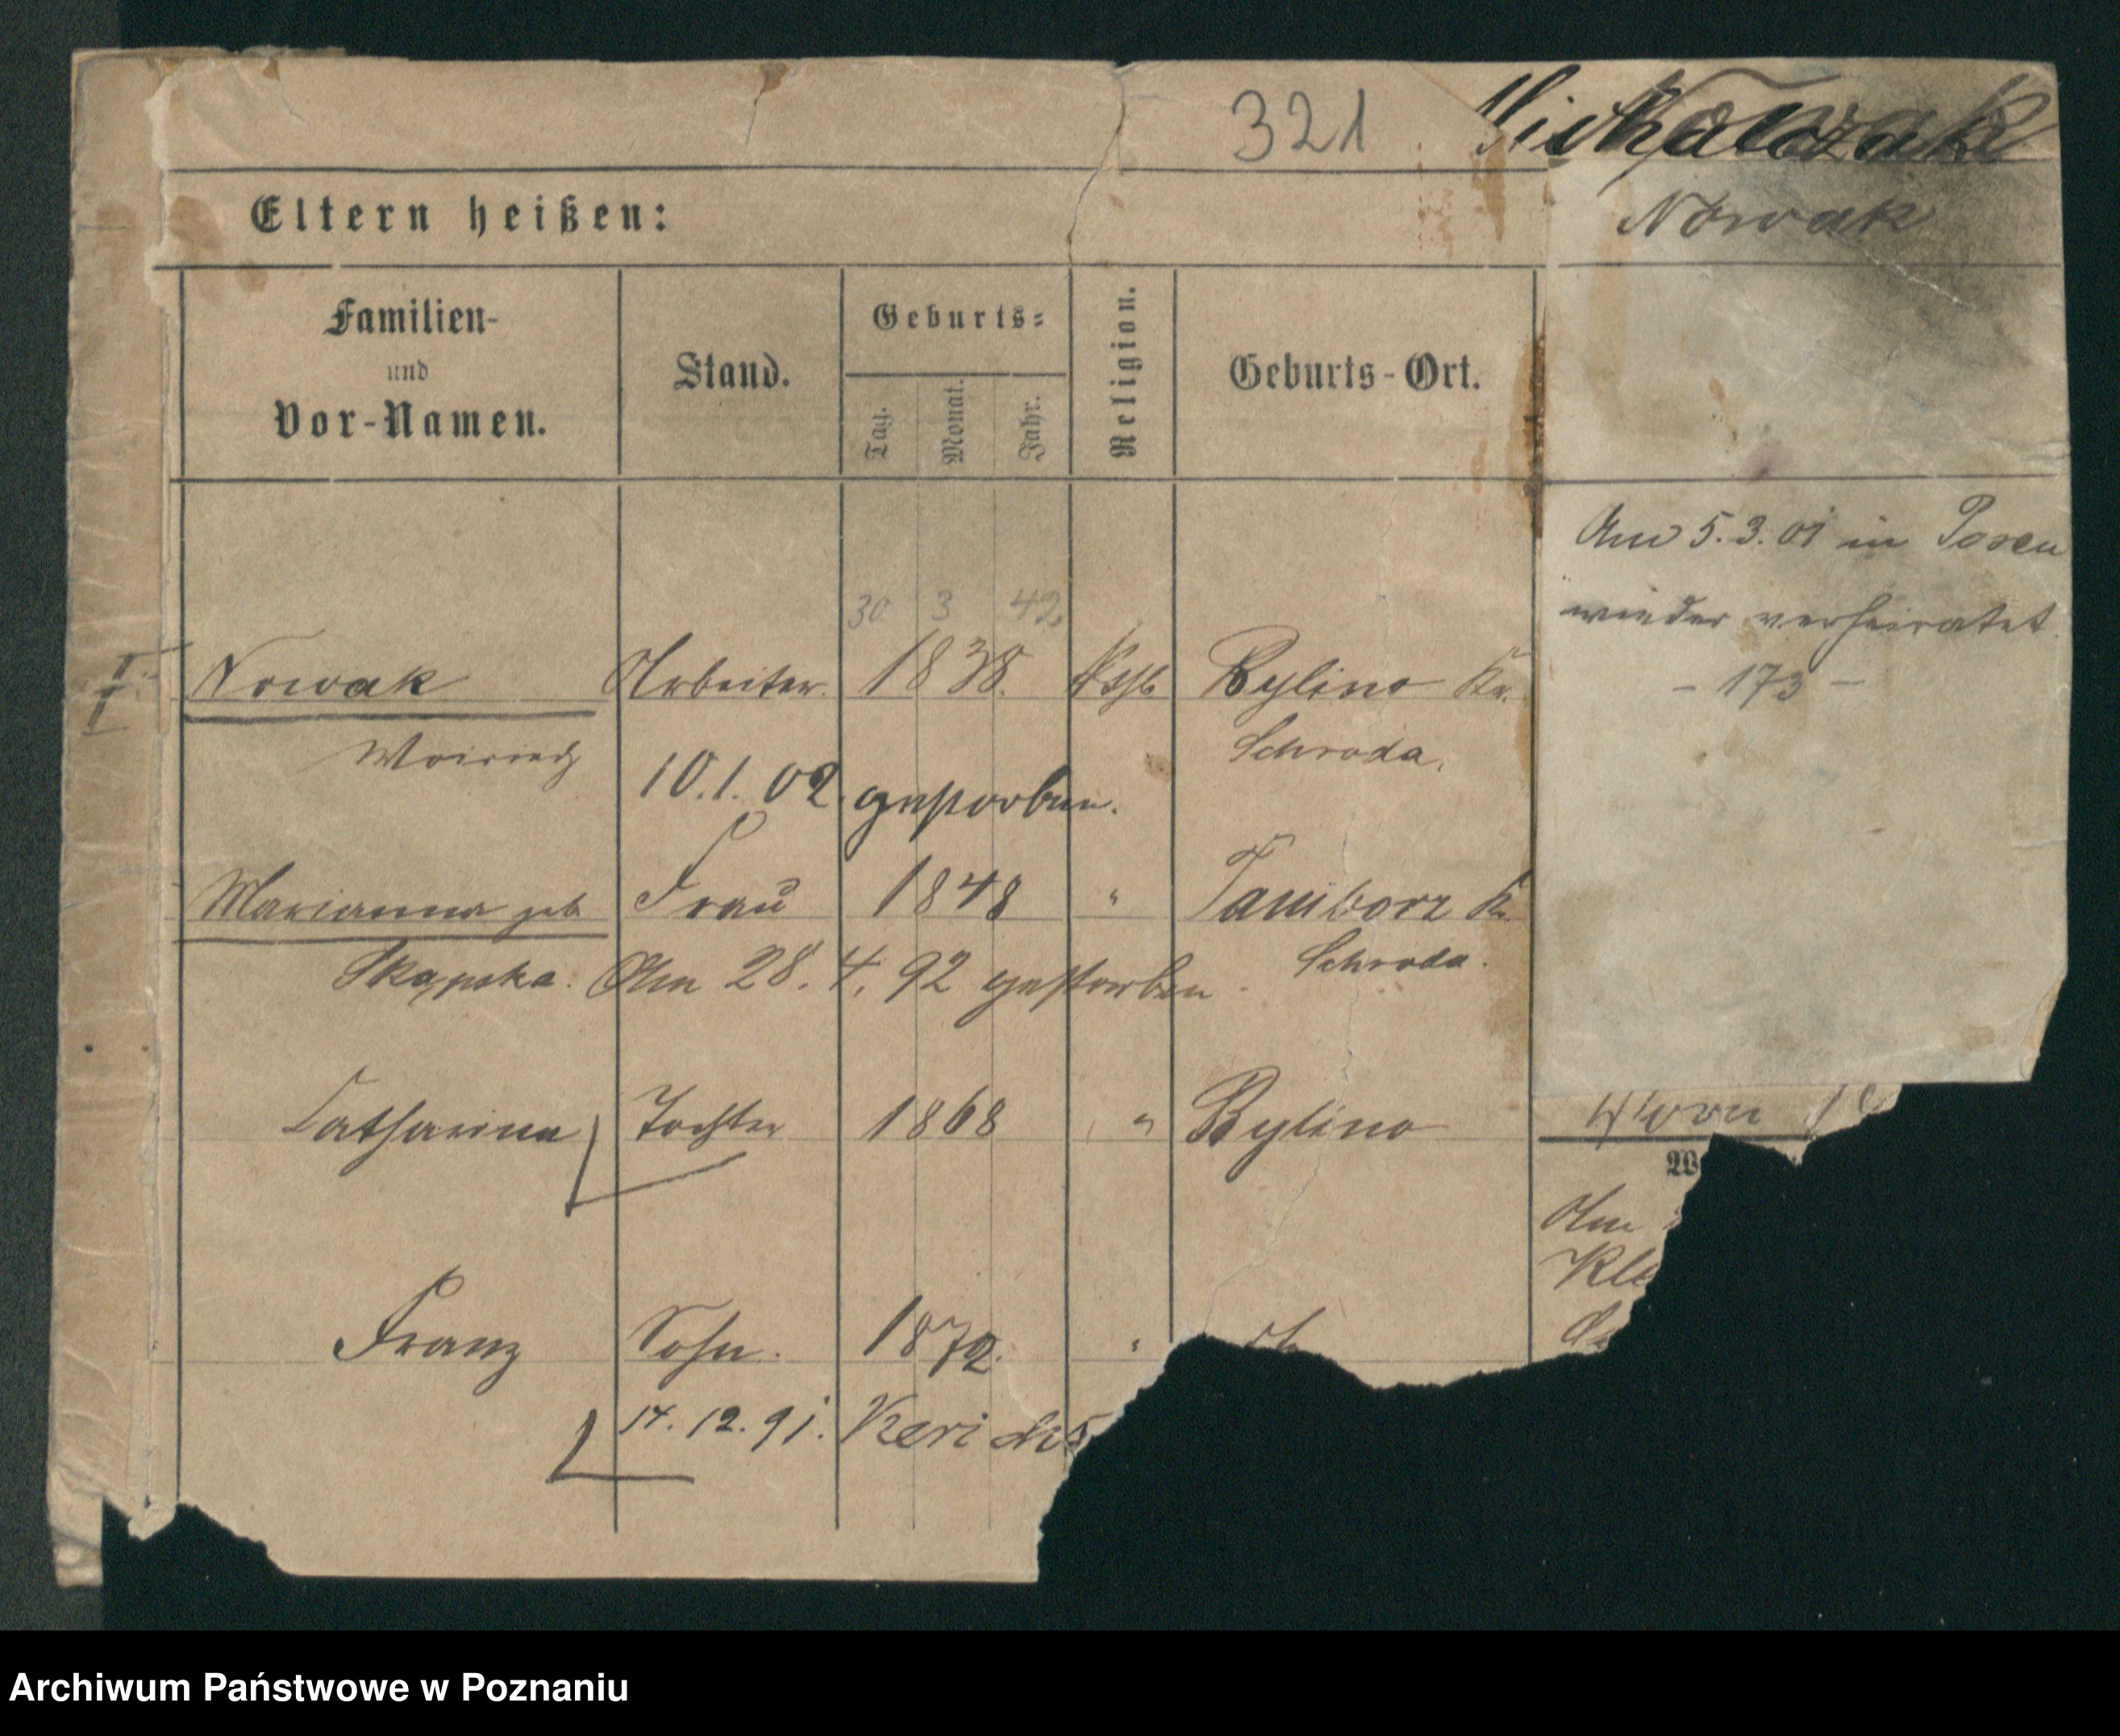 321
Nowak
Eltern heißen:
Nowak
Familien-
und
Vor-Namen.
Stand.
Geburts-
Tag.
Monat.
Jahr.
Religion.
Geburts-Ort.
Am 5.3.01 in Posen
wieder verheiratet.
- 173 -
30 3 42
I. Nowak Arbeiter. 1838. Kath Bylino Kr.
Schroda.
10.1.02. gestorben.
Marianna geb Frau 1848 " Kr.
Skapska. Am 28.4.92 gestorben. Schroda.
Catharina Tochter 1868 " Bylino
W
Am
Franz Sohn. 1872. "
14.12.91.
Archiwum Państwowe w Poznaniu